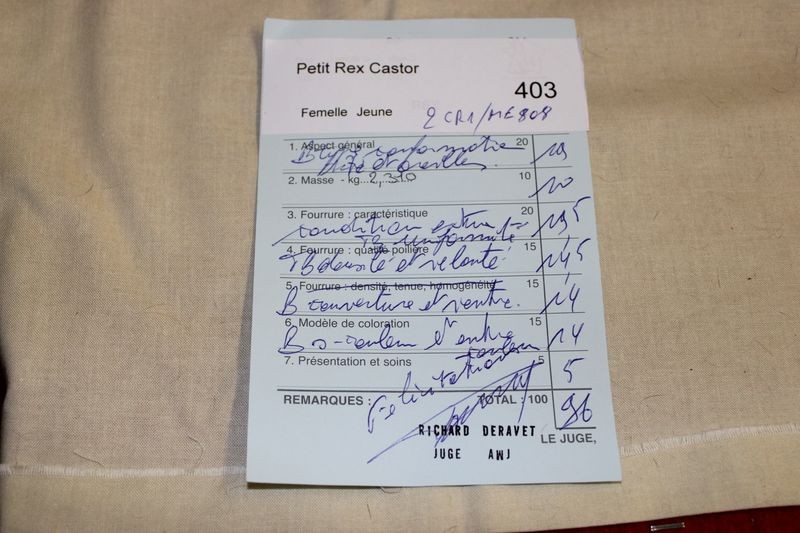 Petit Rex Castor
403
Femelle Jeune 2CR1/ME808
1. Aspect général 20 19
B type conformation
tête et oreilles.
2. Masse - kg...2,310 10 10
3. Fourrure : caractéristique 20 19,5
condition extra
TB uniformité
4. Fourrure : qualité poilière 15 14,5
TB densité et velouté
5. Fourrure : densité, tenue, homogénéité 15 14
B couverture et ventre.
6. Modèle de coloration 15 14
B s-couleur et entre
couleur
7. Présentation et soins 5 5
Felicitations
REMARQUES : TOTAL : 100 96
RICHARD DERAVET
LE JUGE,
JUGE AWJ